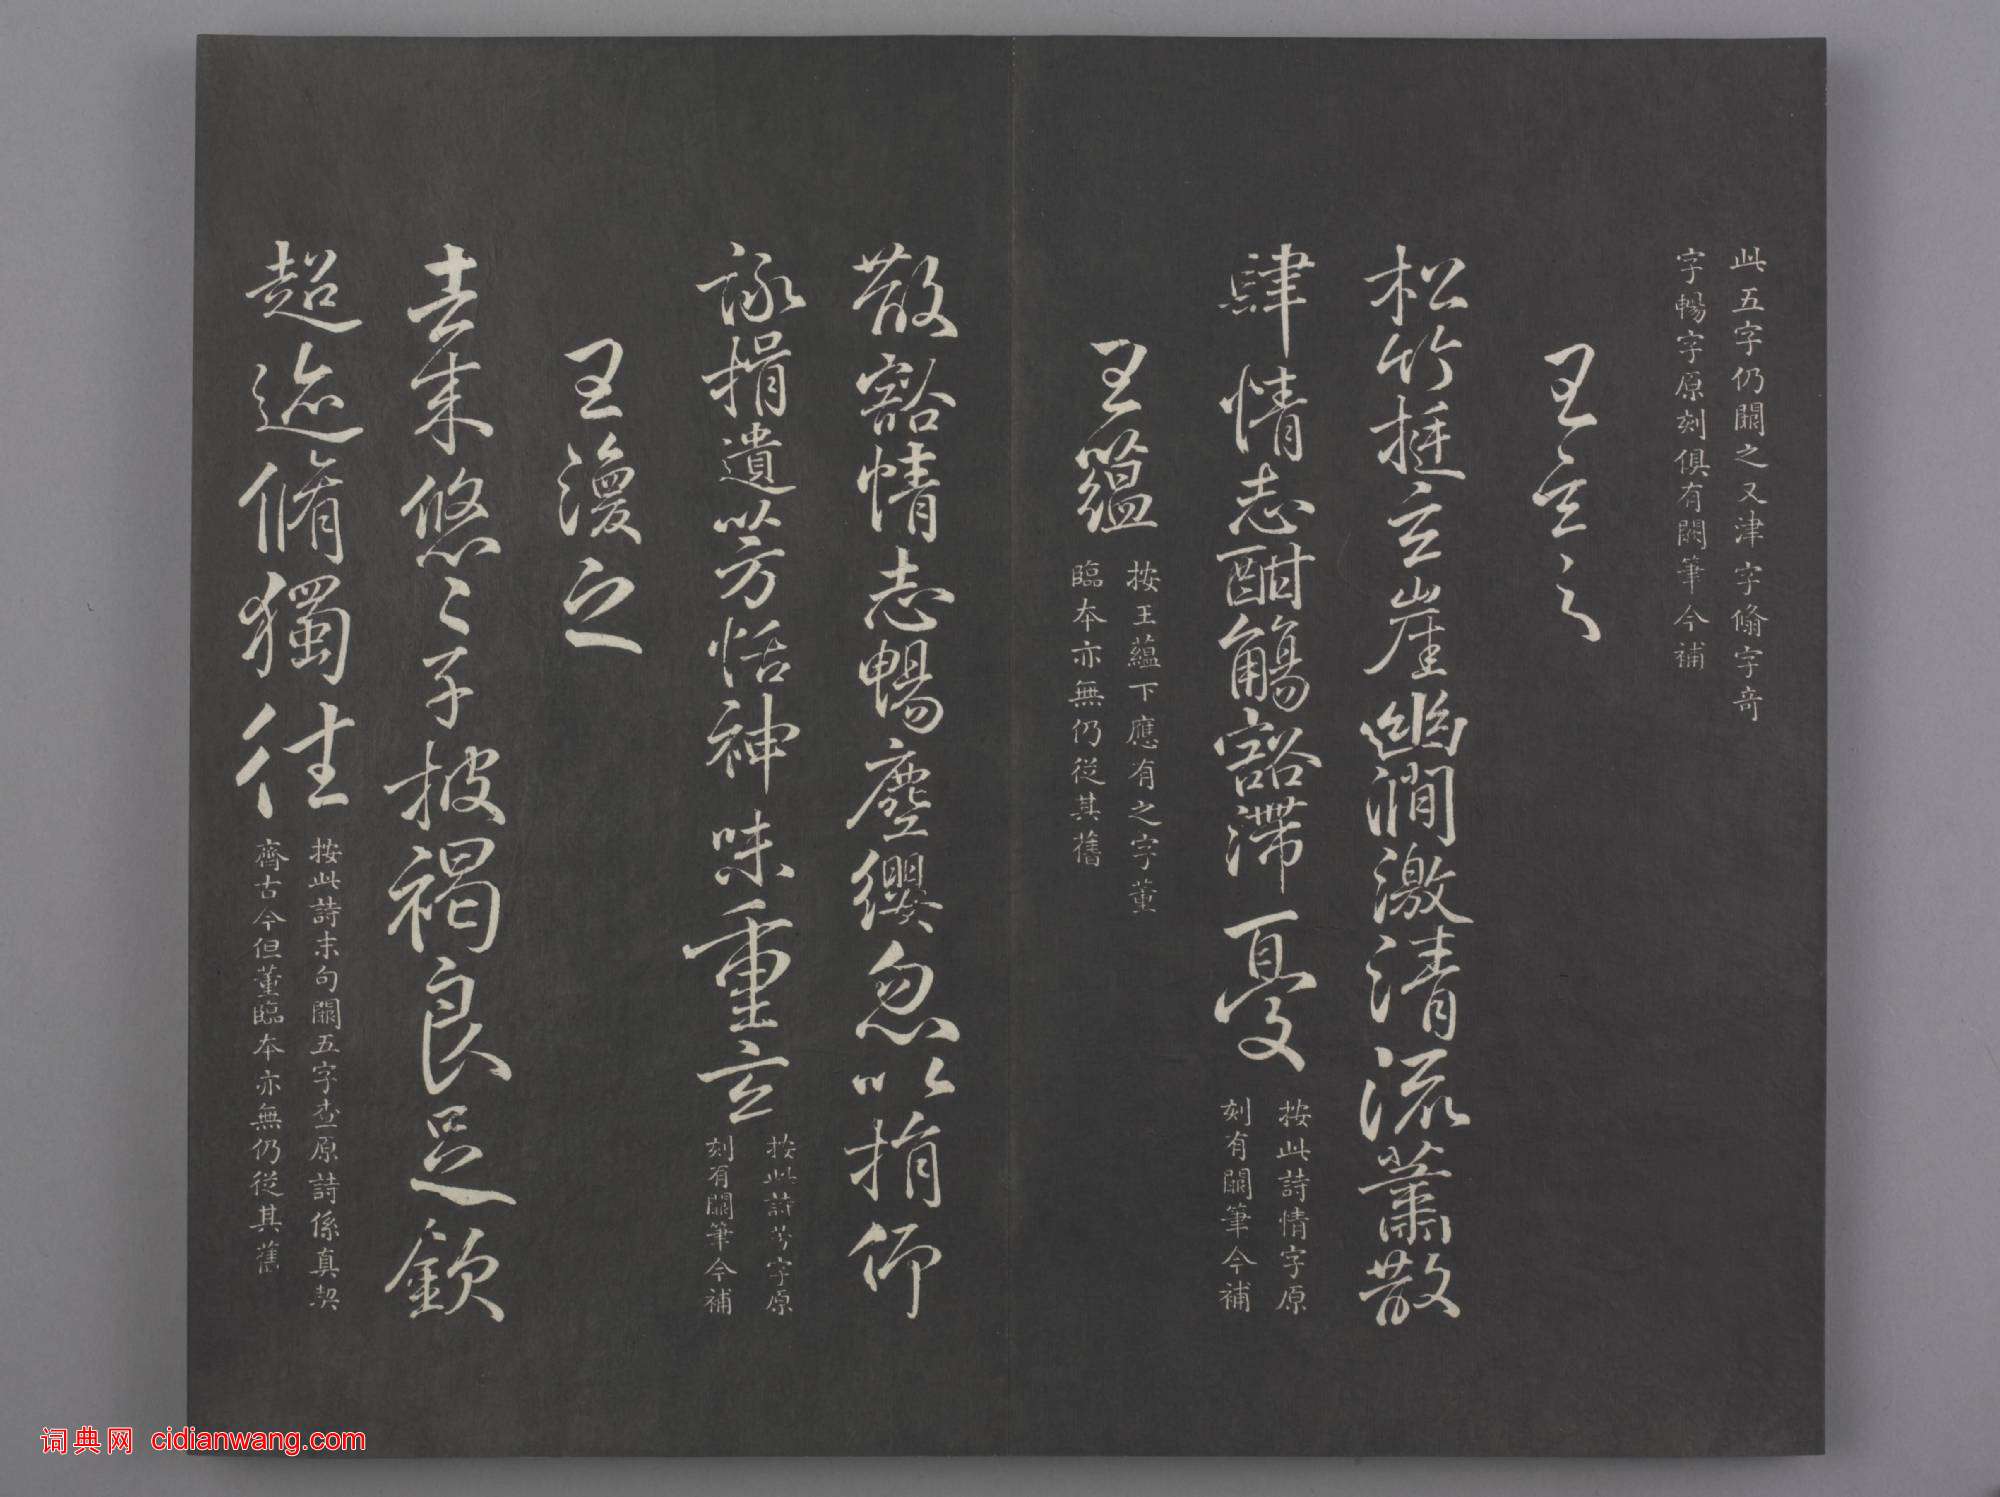 此五字仍闕之又津字翛字奇
字暢字原刻俱有闕筆今補
王玄之
松竹挺玄崖幽澗激清流蕭散
肆情志酣觴豁滯憂
按此詩情字原
刻有闕筆今補
王蘊
按王蘊下應有之字董
臨本亦無仍從其舊
散豁情志暢塵纓忽以捐仰
詠揖遺芳恬神味重玄
按此詩芳字原
刻有闕筆今補
王渙之
去来悠〻子披褐良足欽
超迹脩獨往
按此詩末句闕五字查原詩係真契
齊古今但董臨本亦無仍從其舊
词典网 cidianwang.com